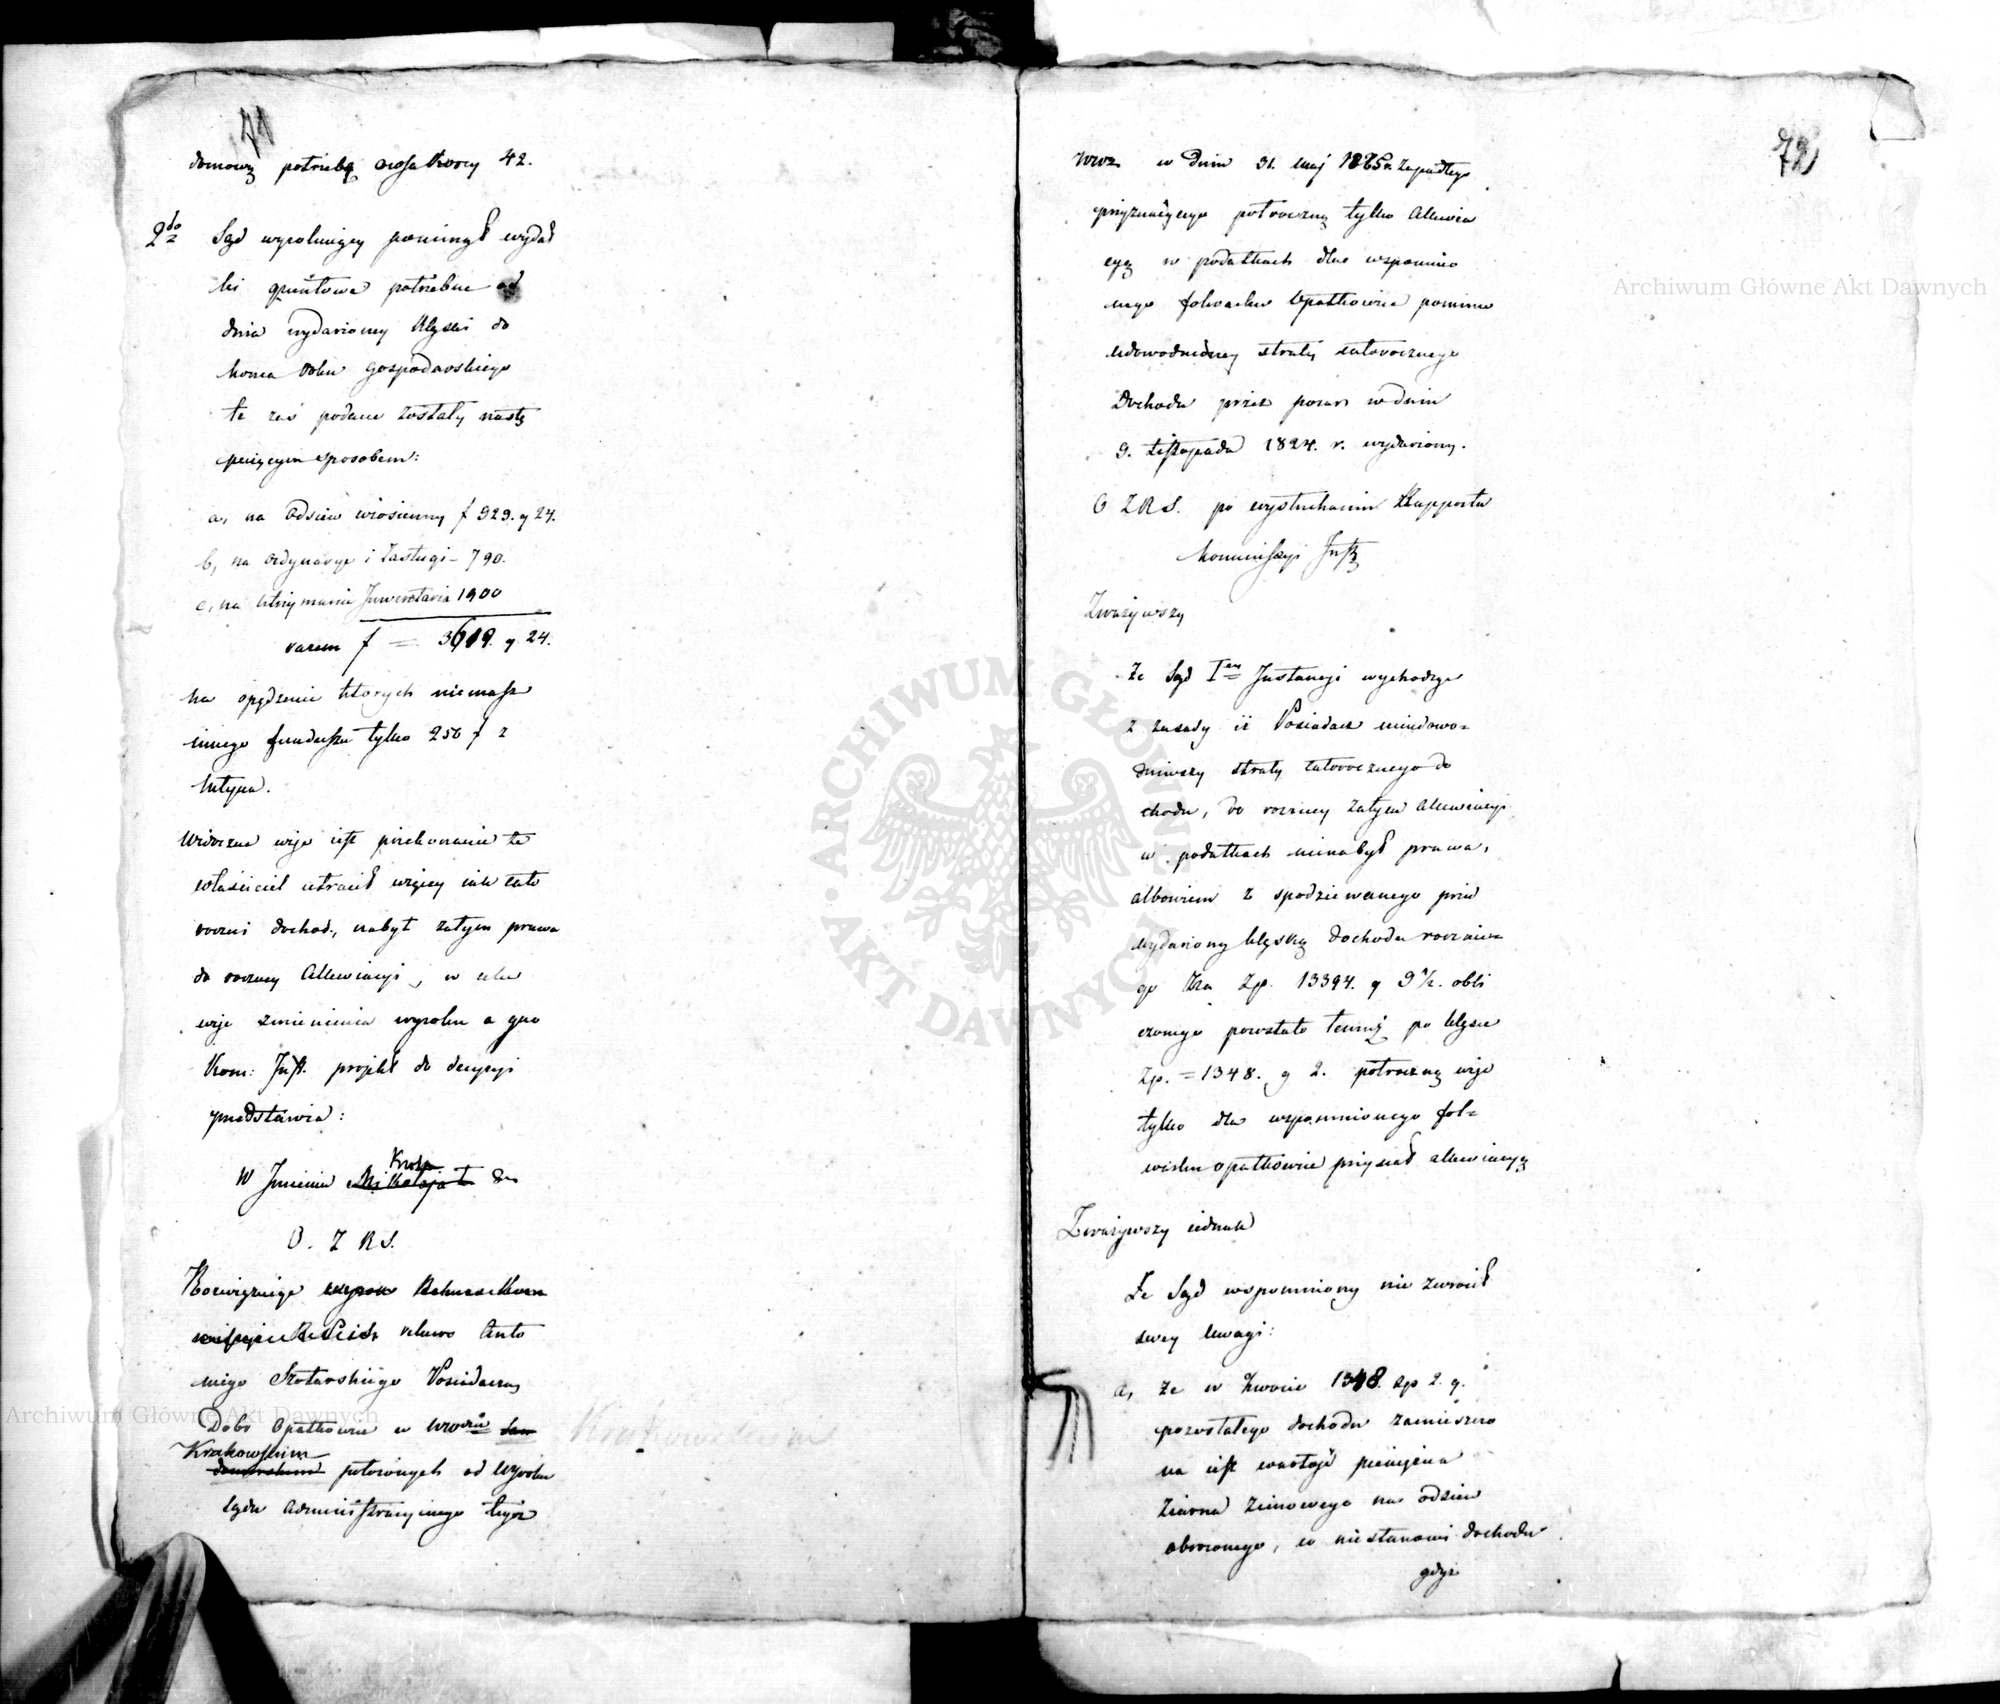 71
domową potrzebę
42.
2do Sąd wyrokuiący pominął wydat
ki gruntowe potrzebne od
dnia wydarzoney klęski do
konca roku gospodarskiego
te zaś podane zostały nastę
puiącym sposobem:
a, na Odsiew wiosienny f 929. g 24.
b, na Ordynarye i Zasługi – 790.
c, na utrzymanie Inwentarza 1900
razem f = 3619. g 24.
na opędzenie których niemasz
innego funduszu tylko 250 f z
Młyna.
Widoczne więc iest przekonanie że
właściciel utracił więcey iak cało
roczni dochod, nabył zatym prawa
do roczney Allewiacyi, w celu
więc zmienienia wyroku a quo
Kom: Inst. projekt do decyzyi
przedstawia:
W Imieniu Mikołaja I
Króla
O. Z R S.
Rozwiązuiąc
rekurs Anto
niego Posiadacza
Dobr Opatkowic w Wdztwie
Krakowskim
położonych od Wyroku
Sądu Administracyinego tegoż
72
Wdz w dniu 31. Maj 1825 r. zapadłego
przyznaiącego połroczną tylko Allewia
cyą w podatkach dla wspomnio
nego folwarku Opatkowice pomimo
udowodnioney straty całorocznego
Dochodu przez pożar w dniu
9. Listopada 1824. r. wydarzony.
O Z R S. po wysłuchaniu Rapportu
Kommissyi Inst
Zważywszy
że Sąd Iey Instancyi wychodząc
z zasady iż Posiadacz nieudowo=
dniwszy straty całorocznego do
chodu, do roczney zatym Allewiacyi
w podatkach nienabył prawa,
albowiem z spodziewanego przed
wydarzoną klęską dochodu roczne=
go na Zp. 13394. g 9 1/2. obli
czonego powstało temuż po klęsce
Zp. = 1348. g 2. połroczną więc
tylko dla wspomnionego fol=
warku Opatkowice przyznał allewiacyą
Zważywszy iednak
Że Sąd wspomniony nie zwrocił
swey uwagi:
a, że w kwocie 1348. Zp 2. g.
pozostałego dochodu zamieszczo
na iest wartość pieniężna
Ziarna Zimowego na odsiew
obroconego, co nie stanowi dochodu
gdyż
Archiwum Główne Akt Dawnych
Archiwum Główne Akt Dawnych
ARCHIWUM GŁÓWNE · AKT DAWNYCH ·